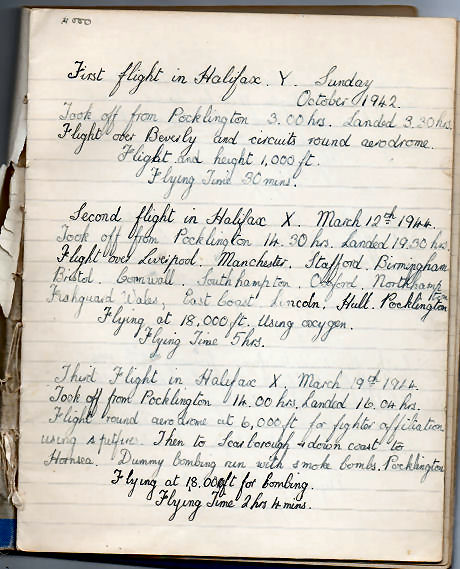 First flight in Halifax. Y. Sunday
October 1942.
Took off from Pocklington 3.00 hrs. Landed 3.30 hrs.
Flight over Beverly and circuits round aerodrome.
Flight and height 1,000 ft.
Flying Time 30 mins.
Second flight in Halifax X. March 12th 1944.
Took off from Pocklington 14.30 hrs. Landed 19.30 hrs.
Flight over Liverpool. Manchester. Stafford. Birmingham
Bristol. Cornwall. Southampton. Oxford. Northampton
Fishguard Wales, East Coast Lincoln. Hull. Pocklington
Flying at 18,000 ft. Using oxygen.
Flying Time 5 hrs.
Third Flight in Halifax X. March 19th 1944.
Took off from Pocklington 14.00 hrs. Landed 16.04 hrs.
Flight round aerodrome at 6,000 ft for fighter affiliation
using spitfire. Then to Scarborough & down coast to
Hornsea. Dummy bombing run with smoke bombs. Pocklington
Flying at 18.000 ft for bombing.
Flying Time 2 hrs 4 mins.